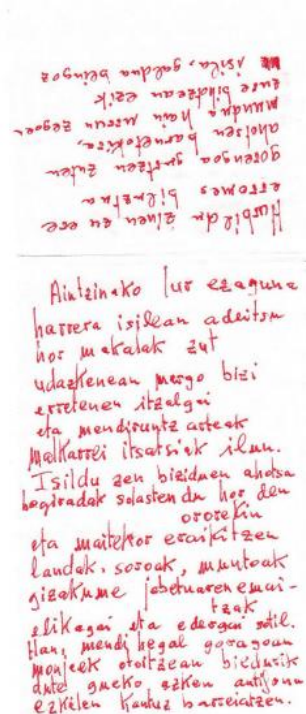 Hurbildu zinen zu ere
erromes bihurtua
gorengoa gurtzen zuten
ahotsen barnetokira,
mundua hain urrun zegoen
zure bihotzean ezik
isila, galdua beingoz
Aintzinako lur ezaguna
harrera isilean adeitsu
hor makalak zut
udazkenean margo bizi
erretenen itzalgai
eta mendiruntz arteak
malkarrei itsatsiak ilun.
Isildu zen bizidunen ahotsa
begiradak solasten du hor den
ororekin
eta maitekor eraikitzen
landak, soroak, muntoak
gizakume jabetuaren emai-
tzak
elikagai eta edergai sotil.
Han, mendi hegal goragoan
monjeek otoitzean bildurik
dute gaueko azken antifona
ezkilen kantuz barreiatzen.